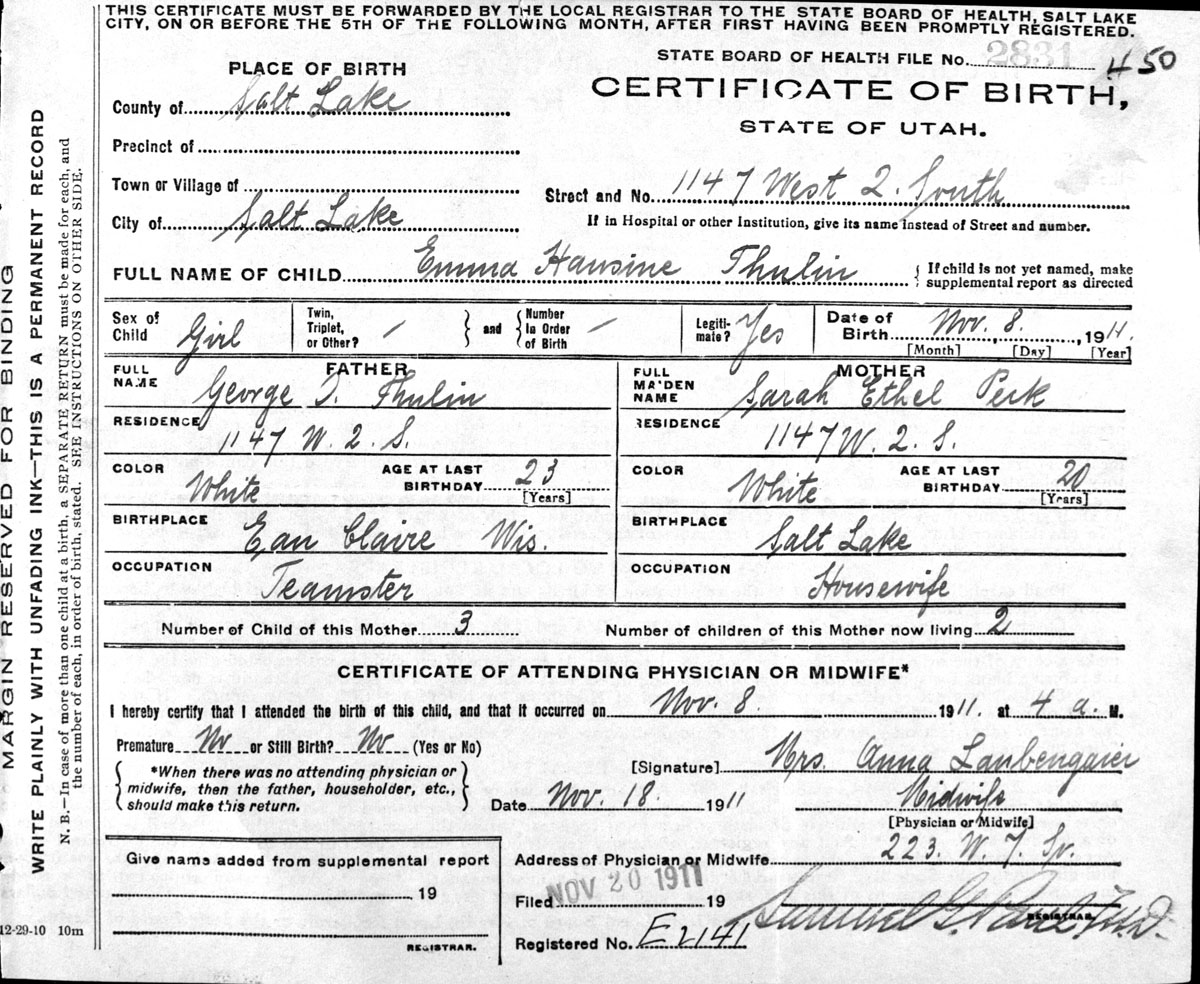 THIS CERTIFICATE MUST BE FORWARDED BY THE LOCAL REGISTRAR TO THE STATE BOARD OF HEALTH, SALT LAKE
CITY, ON OR BEFORE THE 5TH OF THE FOLLOWING MONTH, AFTER FIRST HAVING BEEN PROMPTLY REGISTERED.
STATE BOARD OF HEALTH FILE No. 2831 450
PLACE OF BIRTH
CERTIFICATE OF BIRTH,
STATE OF UTAH.
County of Salt Lake
Precinct of
Town or Village of
Street and No. 1147 West 2. South
City of Salt Lake
If in Hospital or other Institution, give its name instead of Street and number.
FULL NAME OF CHILD Emma Hansine Thulin { If child is not yet named, make
supplemental report as directed
Sex of Child Girl
Twin, Triplet, or Other? /
and
Number in Order of Birth /
Legiti-mate? Yes
Date of Birth Nov. 8. 1911.
[Month] [Day] [Year]
FATHER
FULL NAME George D. Thulin
MOTHER
FULL MAIDEN NAME Sarah Ethel Peck
RESIDENCE 1147 W. 2. S.
RESIDENCE 1147 W. 2. S.
COLOR White AGE AT LAST BIRTHDAY 23 [Years]
COLOR White AGE AT LAST BIRTHDAY 20 [Years]
BIRTHPLACE Eau Claire Wis.
BIRTHPLACE Salt Lake
OCCUPATION Teamster
OCCUPATION Housewife
Number of Child of this Mother 3 Number of children of this Mother now living 2
CERTIFICATE OF ATTENDING PHYSICIAN OR MIDWIFE*
I hereby certify that I attended the birth of this child, and that it occurred on Nov. 8. 1911. at 4 a. M.
Premature No or Still Birth? No (Yes or No)
*When there was no attending physician or
midwife, then the father, householder, etc.,
should make this return.
[Signature] Mrs. Anna Laubengaier
Date Nov. 18. 1911
Midwife
[Physician or Midwife]
Give name added from supplemental report
19
REGISTRAR.
Address of Physician or Midwife 223. W. 7. So.
Filed NOV 20 1911 19
Samuel G. Paul, M.D.
REGISTRAR.
Registered No. E2141
12-29-10 10m
MARGIN RESERVED FOR BINDING
WRITE PLAINLY WITH UNFADING INK—THIS IS A PERMANENT RECORD
N. B.—In case of more than one child at a birth, a SEPARATE RETURN must be made for each, and
the number of each, in order of birth, stated. SEE INSTRUCTIONS ON OTHER SIDE.